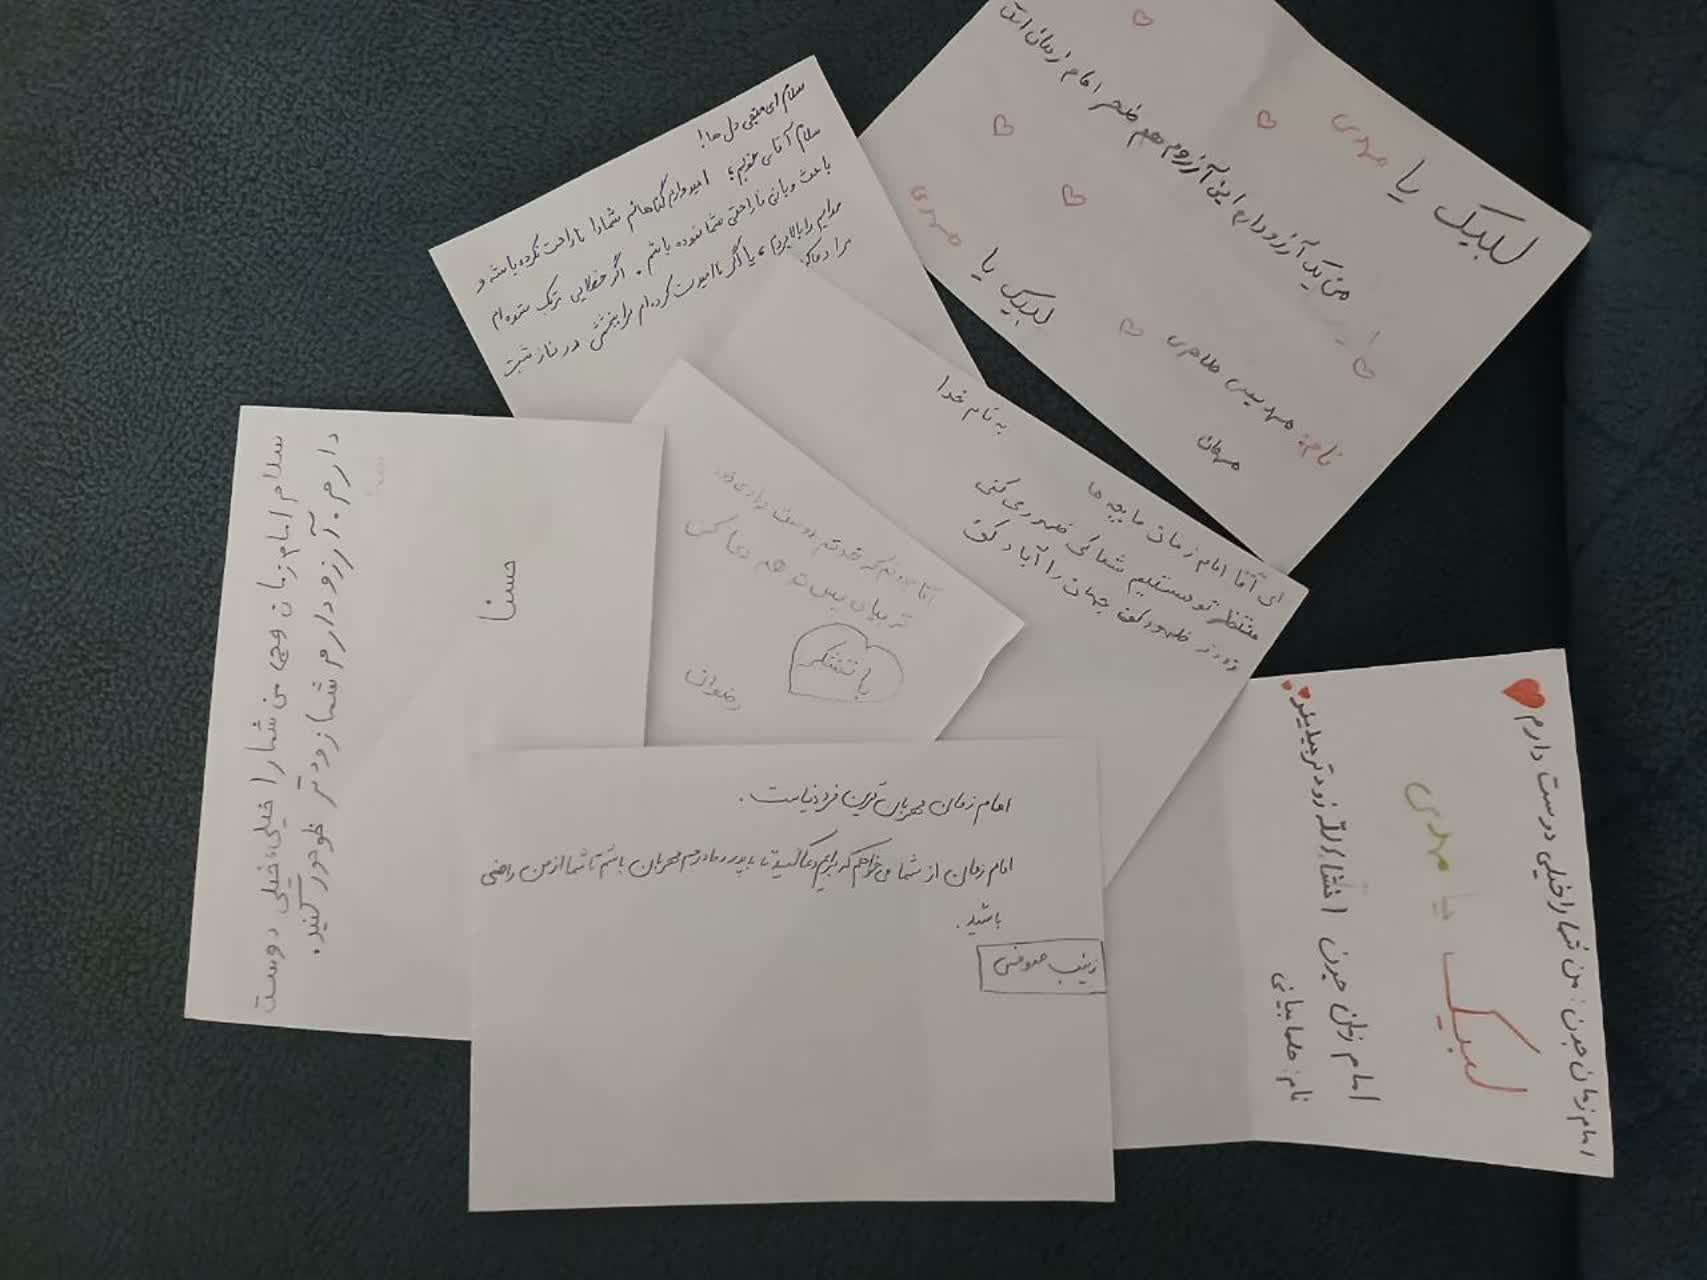 سلام ای منجی دل ها!
سلام آقای خوبم؛ امیدوارم گناهانم شما را ناراحت نکرده باشد و
باعث و بانی ناراحتی شما نبوده باشم. اگر خطایی مرتکب شده ام
صدایم را بالا بردم، یا اگر ناامیدت کرده ام مرا ببخش و در نماز شبت
مرا دعا کن
لبیک یا مهدی
من یک آرزو دارم این آرزوم هم ظهر امام زمان است
لبیک یا مهدی
نام: مهدیس طاهری
مهمان
به نام خدا
ای آقا امام زمان ما بچه ها
منتظر تو هستیم شما کی ظهوری کنی
زودتر ظهور کن جهان را آباد کن
آقا جونم که خودتم دوست داری
تربیان پس تو هم دعا کن
با تشکر
رضوان
سلام امام زمان وجی من شما را خیلی خیلی دوست
دارم. آرزو دارم شما زودتر ظوحور کنید.
حسنا
امام زمان مهربان ترین فرد دنیاست.
امام زمان از شما می خواهم که برایم دعا کنید تا با پدر و مادرم مهربان باشم تا شما از من راضی
باشید.
زینب صوفی
امام زمان جون: من شما را خیلی درست دارم
لبیک یا مهدی
امام زمان جون انشاءلله زودتر بیاید
نام: حلما بیانی